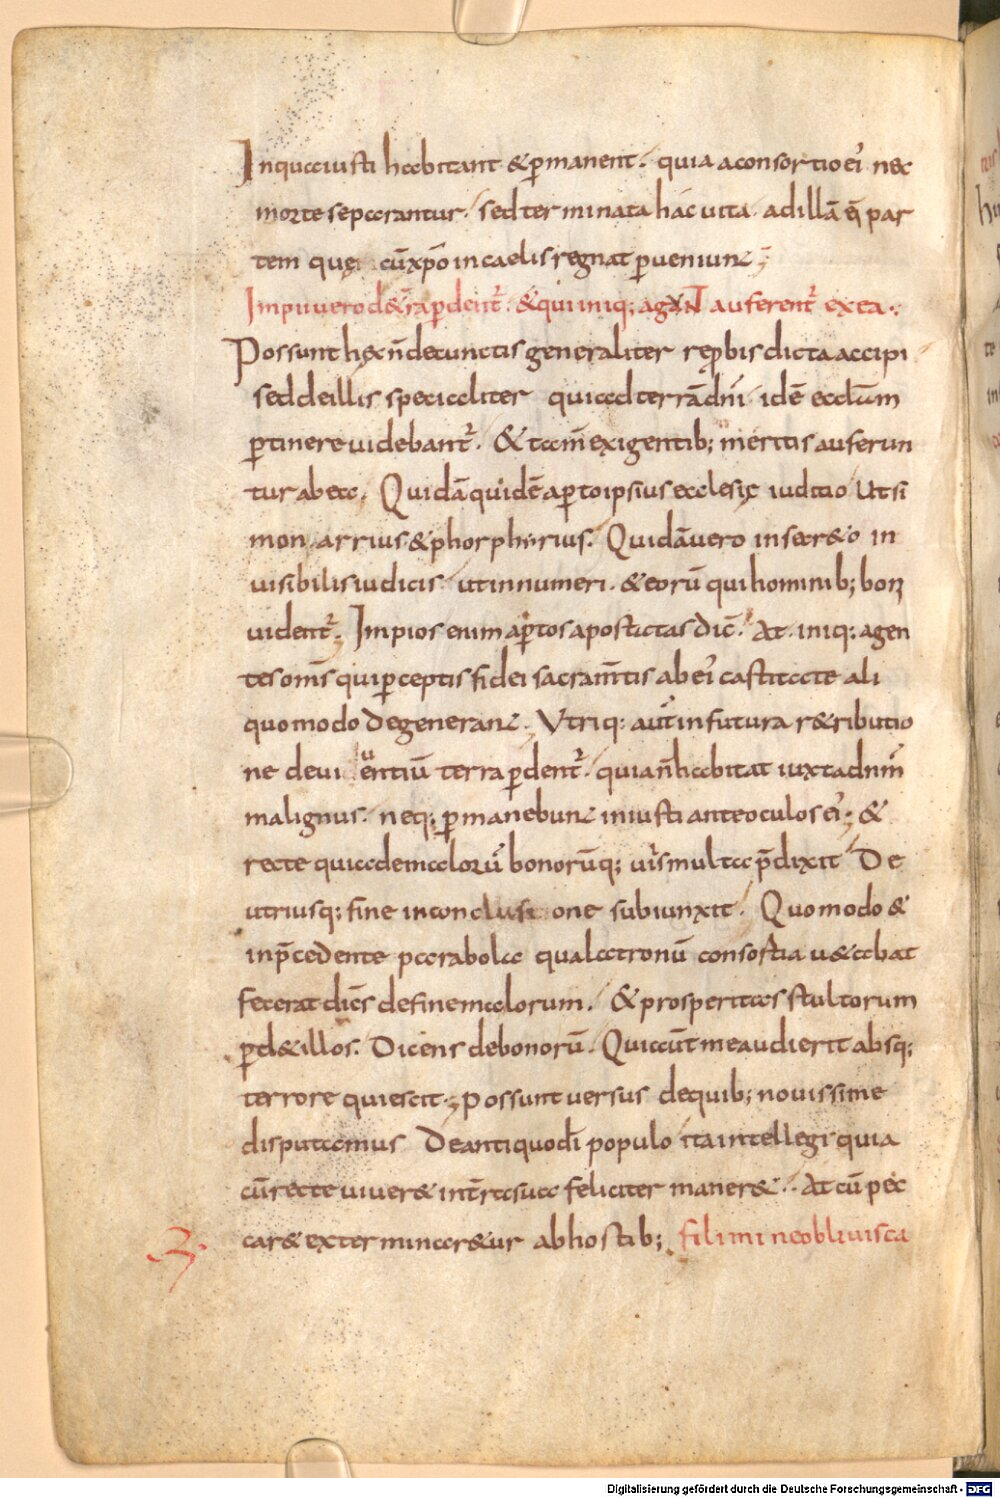 In qua iusti habitant & pmanent. quia a consortio ei' nec
morte separantur. sed terminata hac uita. ad illā ei' par
tem quę cū xp̄o in caelis regnat perueniunt;
Impii uero de t̄ra pdent'. & qui iniq; agunt auferent' ex ea.
Possunt hęc n̄ de cunctis generaliter reprobis dicta accipi
sed de illis specialiter qui ad terrā dn̄i idē ecclam
ptinere uidebant'. & tam̄ exigentib; meritis auferun
tur ab ea. Quidā quidē apto ipsius ecclesię iuditio Ut si
mon arrius & phorphirius. Quidā uero in secr&o in
uisibilis iudicis ut innumeri. & eorū qui hominib; boni
uident'; Impios enim aptos apostatas dic̄. At iniq; agen
tes om̄s qui pceptis fidei sacram̄tis ab ei' castitate ali
quo modo degenerant; Vtriq; aut̄ in futura r&ributio
ne de uiuentiū terra pdent'. quia n̄ habitat iuxta dn̄m
malignus. neq; pmanebunt iniusti ante oculos ei'; &
recte quia de malorū bonorūq; uiis multa p̄dixit De
utriusq; fine in conclusione subiunxit. Quomodo &
in p̄cedente parabola qua latronū consortia u&abat
fecerat dicēs de fine malorum. & prosperitas stultorum
pd& illos. Dicens de bonorū. Qui aūt me audierit absq;
terrore quiescit; possunt uersus de quib; nouissime
disputamus De antiquo dī populo ita intellegi quia
cū recte uiuer& in t̄ra sua feliciter maner&. At cū pec
car& exterminar&ur ab hostib; fili mi ne obliuisca
Digitalisierung gefördert durch die Deutsche Forschungsgemeinschaft - DFG